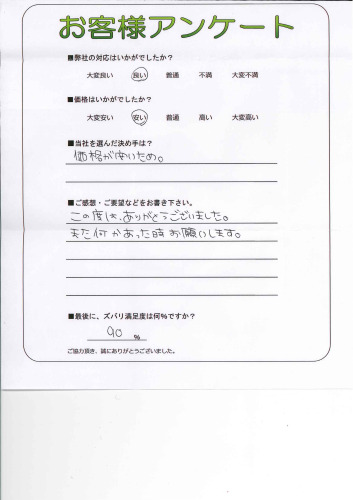 お客様アンケート
■弊社の対応はいかがでしたか？
大変良い 良い 普通 不満 大変不満
■価格はいかがでしたか？
大変安い 安い 普通 高い 大変高い
■当社を選んだ決め手は？
価格が安いため。
■ご感想・ご要望などをお書き下さい。
この度は、ありがとうございました。
また何かあった時お願いします。
■最後に、ズバリ満足度は何％ですか？
90 ％
ご協力頂き、誠にありがとうございました。